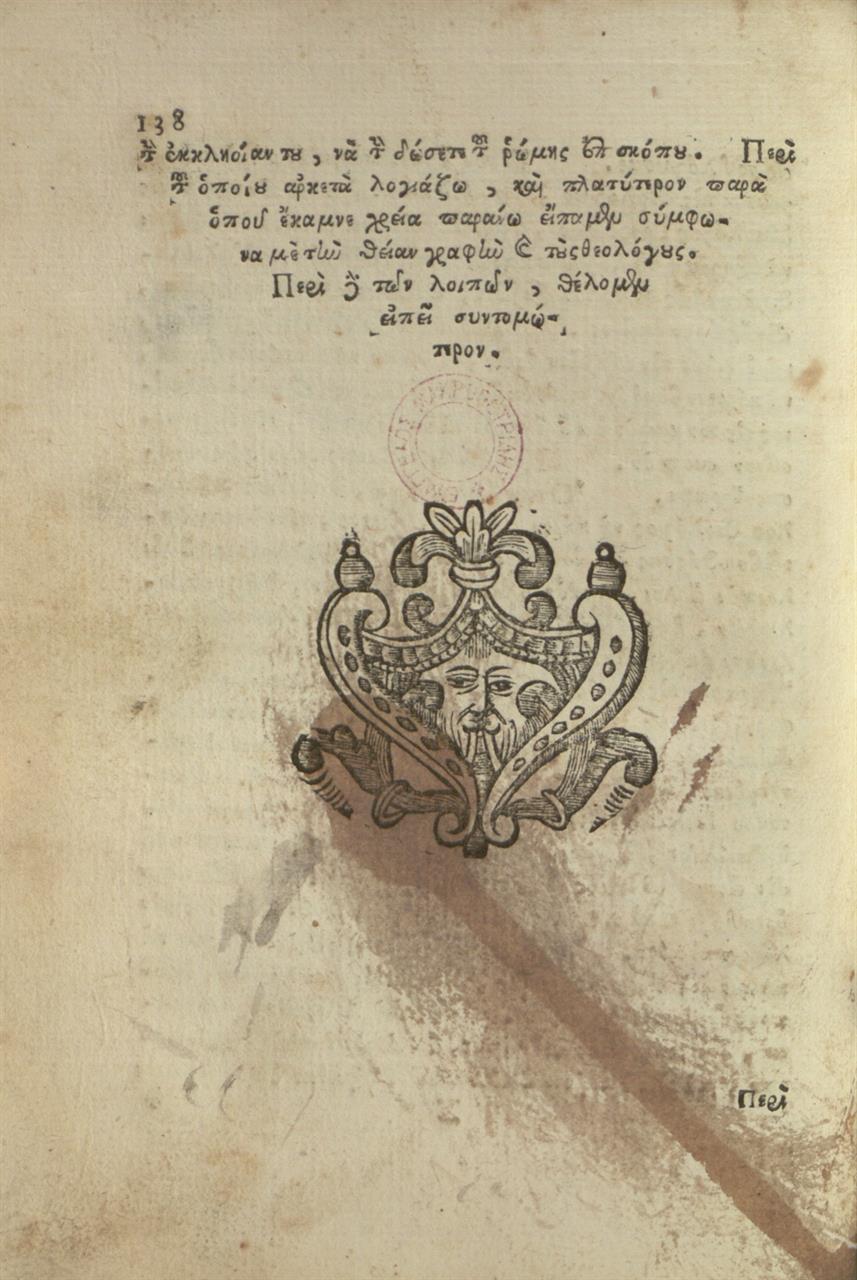 138
τὴν ἐκκλησίαν του, νὰ τὴν δώσετε τοῦ ῥώμης ἐπισκόπου. Περὶ
τοῦ ὁποίου ἀρκετὰ λογιάζω, καὶ πλατύτερον παρὰ
ὁποῦ ἔκαμνε χρεία παραίνω εἴπαμεν σύμφω-
να μὲ τὴν θείαν γραφὴν καὶ τοὺς θεολόγους.
Περὶ δὲ τῶν λοιπῶν, θέλομεν
εἰπεῖ συντομώ-
τερον.
Περὶ